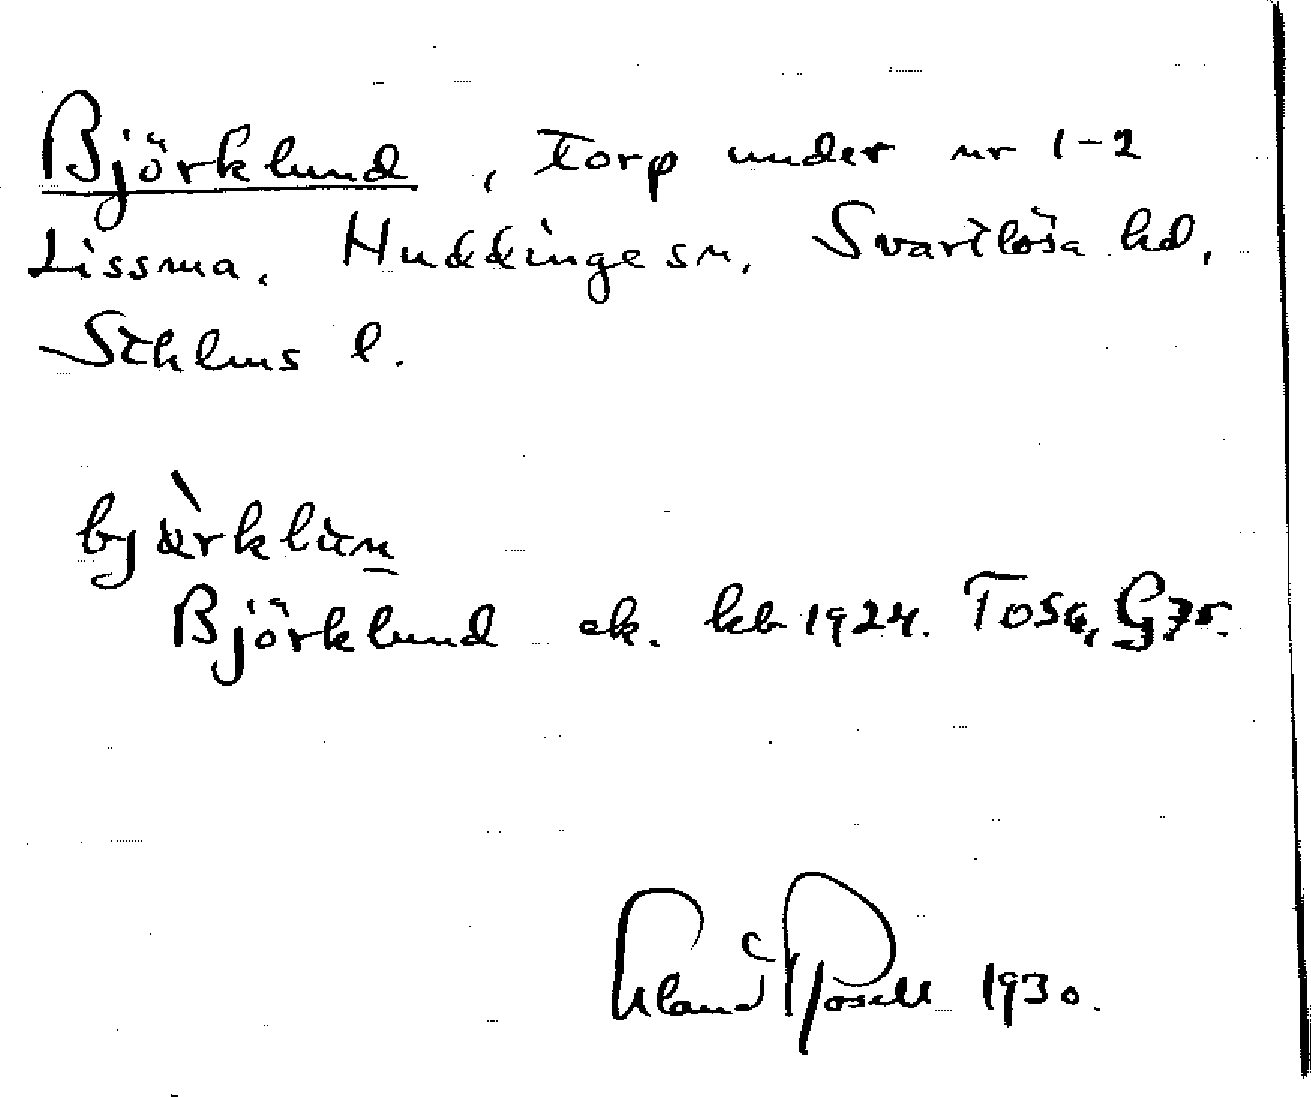 Björklund, torp under nr 1-2
Lissma. Huddinge sn. Svartlösa hd.
Sthlms l.
bjärklun
Björklund ek. kb 1924. Tosa, G75.
Erland Rosell 1930.